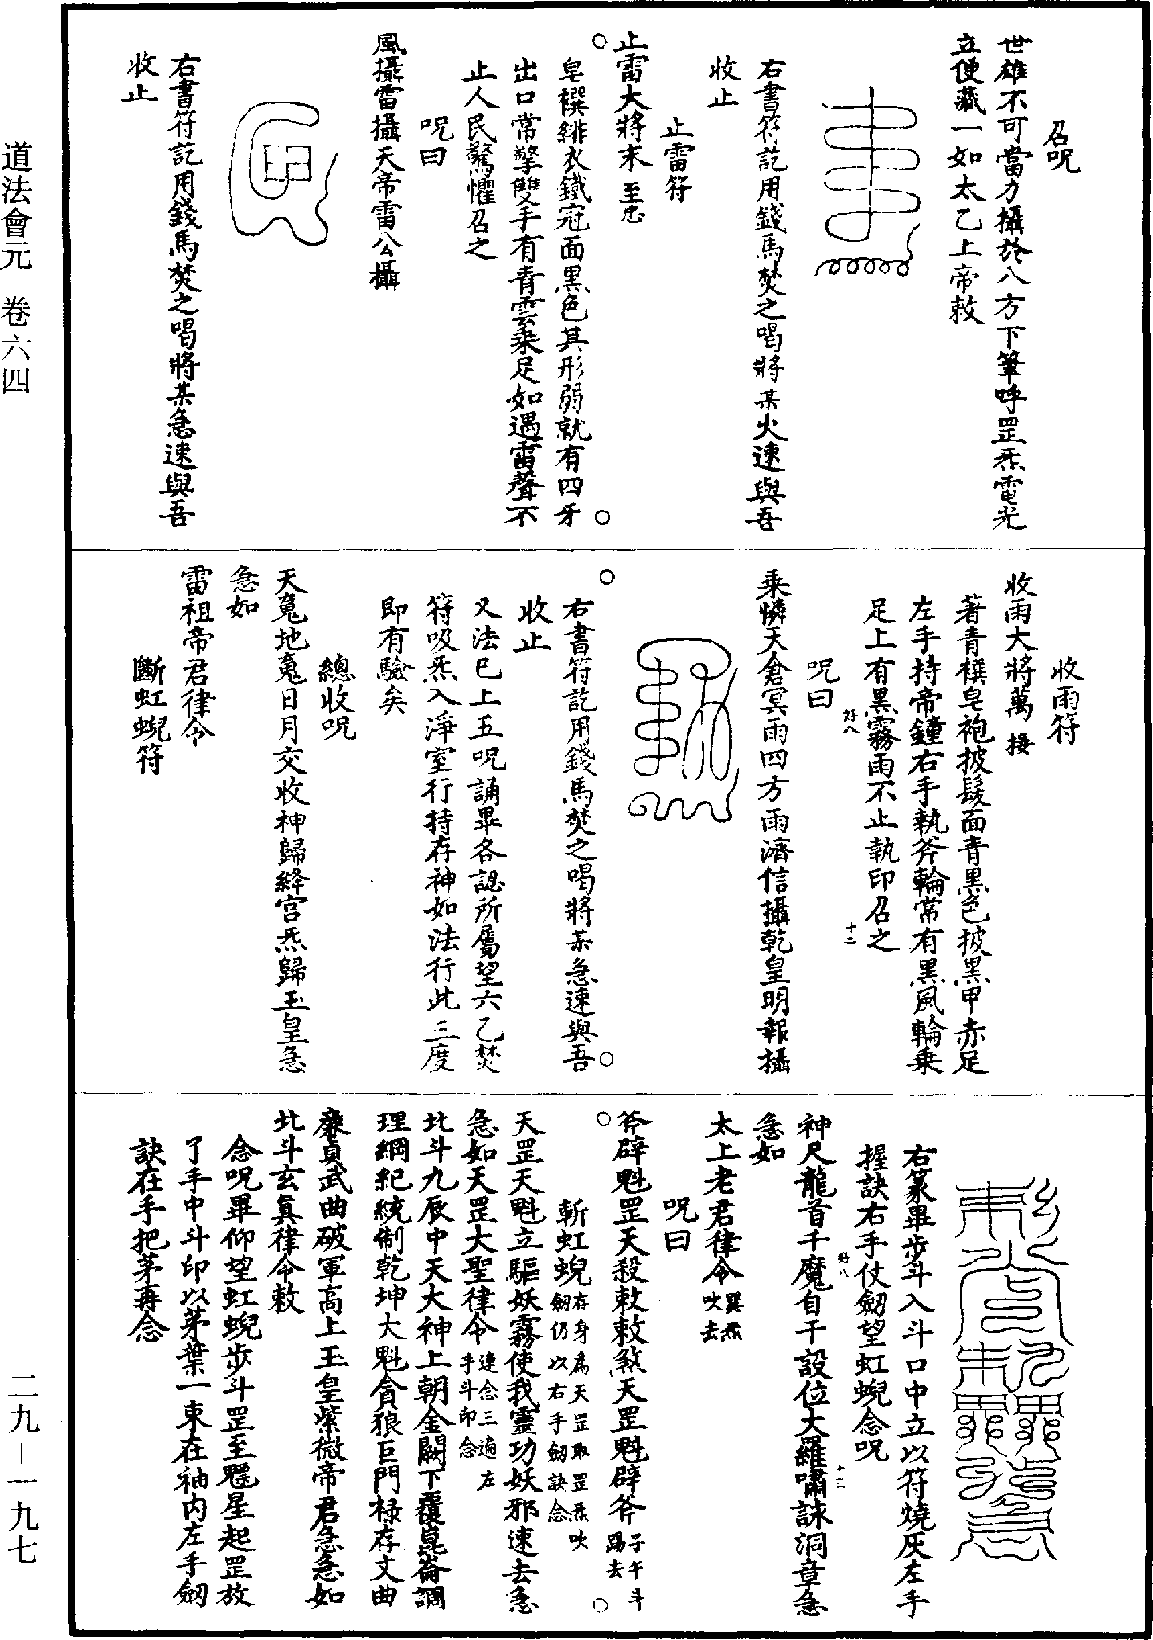 召呪
世雄不可當力攝於八方下筆呼罡炁電光
立便藏一如太乙上帝敕
右書符訖用錢馬焚之喝將某火速與吾
收止
止雷符
止雷大將末至忠
皂襈緋衣鐵冠面黑色其形弱就有四牙
出口常擎雙手有青雲乘足如遇雷聲不
止人民驚懼召之
呪曰
風攝雷攝天帝雷公攝
右書符訖用錢馬焚之喝將某急速與吾
收止
收雨符
收雨大將萬接
著青襈皂袍披髮面青黑色披黑甲赤足
左手持帝鐘右手執斧輪常有黑風輪乘
足上有黑霧雨不止執印召之
呪曰
乘憐天倉冥雨四方雨濟信攝乾皇明報攝
右書符訖用錢馬焚之喝將某急速與吾
收止
又法已上五呪誦畢各認所屬望六乙焚
符吸炁入淨室行持存神如法行此三度
即有驗矣
總收呪
天䰟地䰟日月交收神歸絳宮炁歸玉皇急
急如
雷祖帝君律令
斷虹蜺符
右篆畢步斗入斗口中立以符燒灰左手
握訣右手仗劒望虹蜺念呪
神尺龍首千魔自干設位大羅嘯詠洞章急
急如
太上老君律令巽炁吹去
呪曰
斧辟魁罡天殺敕敕煞天罡魁辟斧子午斗踢去
斬虹蜺存身為天罡取罡炁吹劒仍以右手劒訣念
天罡天魁立驅妖霧使我靈功妖邪速去急
急如天罡大聖律令連念三遍左手斗印念
北斗九辰中天大神上朝金闕下覆崑崙調
理綱紀統制乾坤大魁貪狼巨門祿存文曲
廉貞武曲破軍高上玉皇紫微帝君急急如
北斗玄真律令敕
念呪畢仰望虹蜺步斗罡至魒星起罡放
了手中斗印以茅葉一束在袖內左手劒
訣在手把茅再念
道法會元 卷六四
二九—一九七